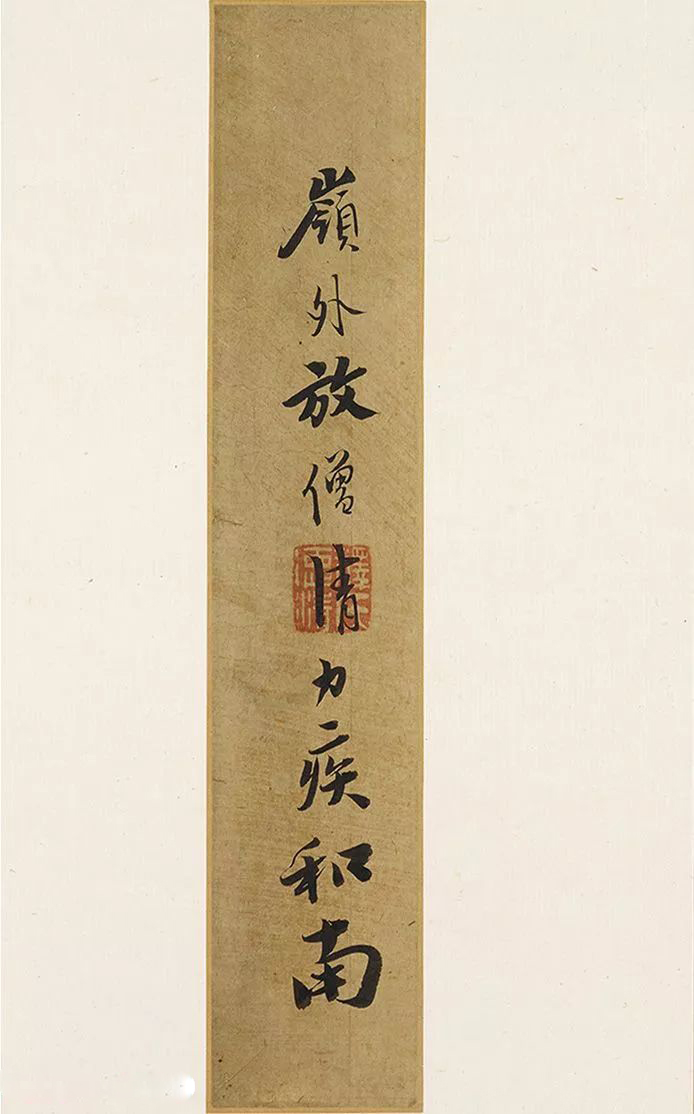 嶺外放僧清力疾和南